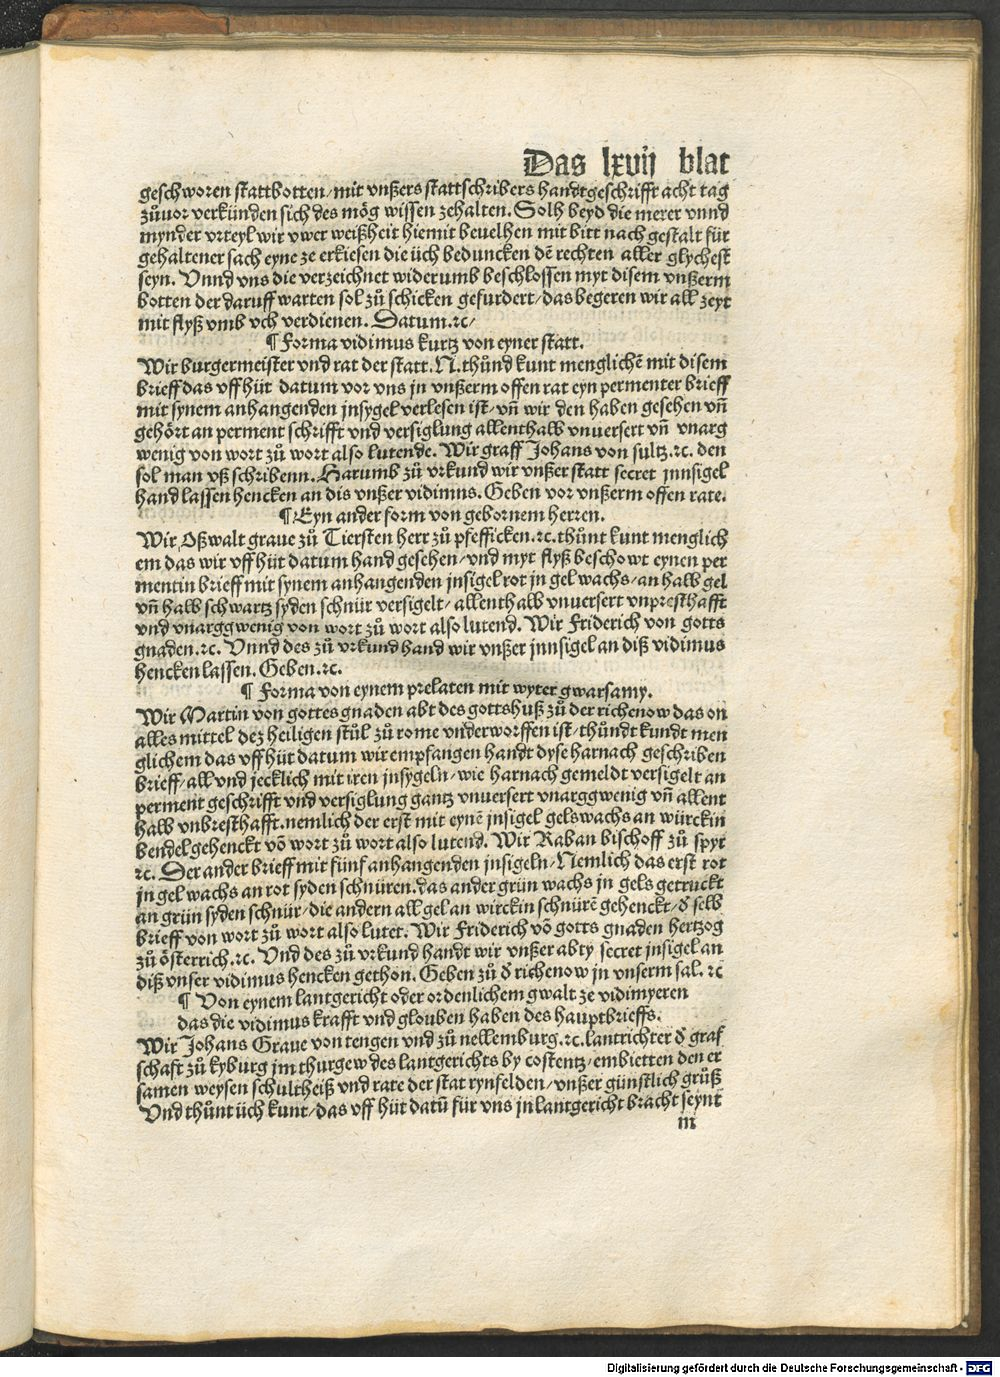 Das lxvij blat
geschworen stattbotten/mit vnßers stattschribers handtgeschrifft acht tag
zůuor verkünden sich des mög wissen zehalten. Solh beyd die merer vnnd
mynder vrteyl wir vwer weißheit hiemit beuelhen mit bitt nach gestalt für
gehaltener sach eyne ze erkiesen die üch beduncken dē rechten aller glychest
seyn. Vnnd vns die verzeichnet widerumb beschlossen myt disem vnßerm
botten der daruff warten sol zů schicken gefurdert/das begeren wir all zeyt
mit flyß vmb vch verdienen. Datum.⁊c/
¶ Forma vidimus kurtz von eyner statt.
Wir burgermeister vnd rat der statt.N.thůnd kunt menglichē mit disem
brieff das vff hüt datum vor vns jn vnßerm offen rat eyn permenter brieff
mit synem anhangenden jnsygel verlesen ist/vn̄ wir den haben gesehen vn̄
gehört an perment schrifft vnd versiglung allenthalb vnuersert vn̄ vnarg
wenig von wort zů wort also lutende. Wir graff Johans von sultz.⁊c. den
sol man vß schribenn. Harumb zů vrkund wir vnßer statt secret jnnsigel
hand lassen hencken an dis vnßer vidimus. Geben vor vnßerm offen rate.
¶ Eyn ander form von gebornem herren.
Wir Oßwalt graue zů Tiersten herr zů pfefficken.⁊c.thůnt kunt menglich
em das wir vff hüt datum hand gesehen/vnd myt flyß beschowt eynen per
mentin brieff mit synem anhangenden jnsigel rot jn gel wachs/an halb gel
vn̄ halb schwartz syden schnür versigelt/allenthalb vnuersert vnpresthafft
vnd vnarggwenig von wort zů wort also lutend. Wir Friderich von gotts
gnaden.⁊c. Vnnd des zů vrkund hand wir vnßer jnnsigel an diß vidimus
hencken lassen. Geben.⁊c.
¶ Forma von eynem prelaten mit wyter gwarsamy.
Wir Martin von gottes gnaden abt des gottshuß zů der richenow das on
alles mittel dez heiligen stůl zů rome vnderworffen ist/thůndt kundt men
glichem das vff hüt datum wir empfangen handt dyse harnach geschriben
brieff/all vnd jecklich mit iren jnsygeln/wie harnach gemeldt versigelt an
perment geschrifft vnd versiglung gantz vnuersert vnarggwenig vn̄ allent
halb vnbresthafft.nemlich der erst mit eynē jnsigel gels wachs an würckin
bendel gehenckt vō wort zů wort also lutend. Wir Raban bischoff zů spyr
⁊c. Der ander brieff mit fünf anhangenden jnsigeln/Nemlich das erst rot
jn gel wachs an rot syden schnüren.das ander grün wachs jn gels getruckt
an grün syden schnür/die andern all gel an wirckin schnürē gehenckt/đ selb
brieff von wort zů wort also lutet. Wir Friderich vō gotts gnaden hertzog
zů österrich.⁊c. Vnd des zů vrkund handt wir vnßer abty secret jnsigel an
diß vnser vidimus hencken gethon. Geben zů đ richenow jn vnserm sal. ⁊c
¶ Von eynem lantgericht oder ordenlichem gwalt ze vidimyeren
das die vidimus krafft vnd glouben haben des hauptbrieffs.
Wir Johans Graue von tengen vnd zů nellemburg.⁊c.lantrichter đ graf
schaft zů kyburg jm thurgew des lantgerichts by costentz/embietten den er
samen weysen schultheiß vnd rate der stat rynfelden/vnßer günstlich grůß
Vnd thůnt üch kunt/das vff hüt datū für vns jn lantgericht bracht seynt
m
Digitalisierung gefördert durch die Deutsche Forschungsgemeinschaft - DFG